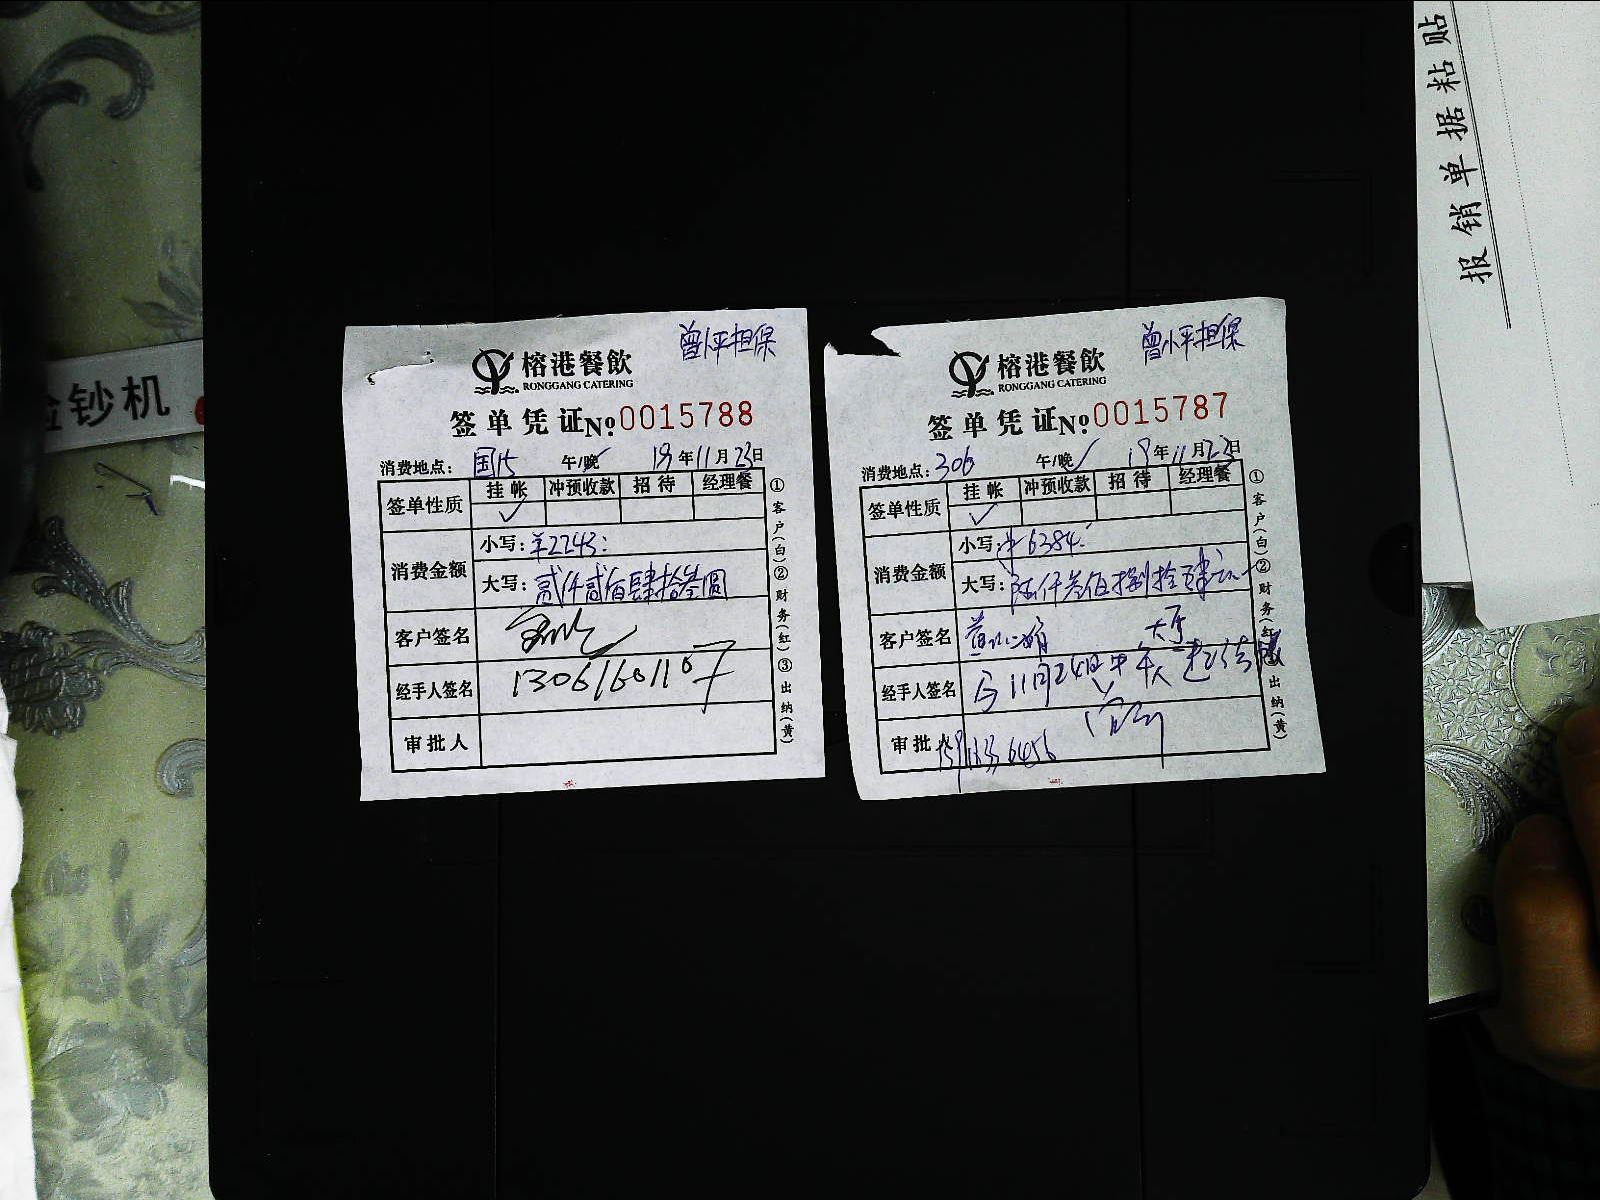 曾小平担保
榕港餐飲
RONGGANG CATERING
签单凭证 No. 0015788
消费地点: 国15 午/晚 19年11月23日
签单性质 挂帐 冲预收款 招待 经理餐
✓
消费金额 小写: ¥2243:
大写: 贰仟贰佰肆拾叁圆
客户签名
经手人签名 13061601107
审批人
①客户(白)②财务(红)③出纳(黄)
曾小平担保
榕港餐飲
RONGGANG CATERING
签单凭证 No. 0015787
消费地点: 306 午/晚 ✓ 19年11月23日
签单性质 挂帐 冲预收款 招待 经理餐
✓
消费金额 小写: ¥6384.
大写: 陆仟叁佰捌拾肆元
客户签名
经手人签名 11月24日中午
审批人
①客户(白)②财务(红) 出纳(黄)
报销单据粘贴
钞机